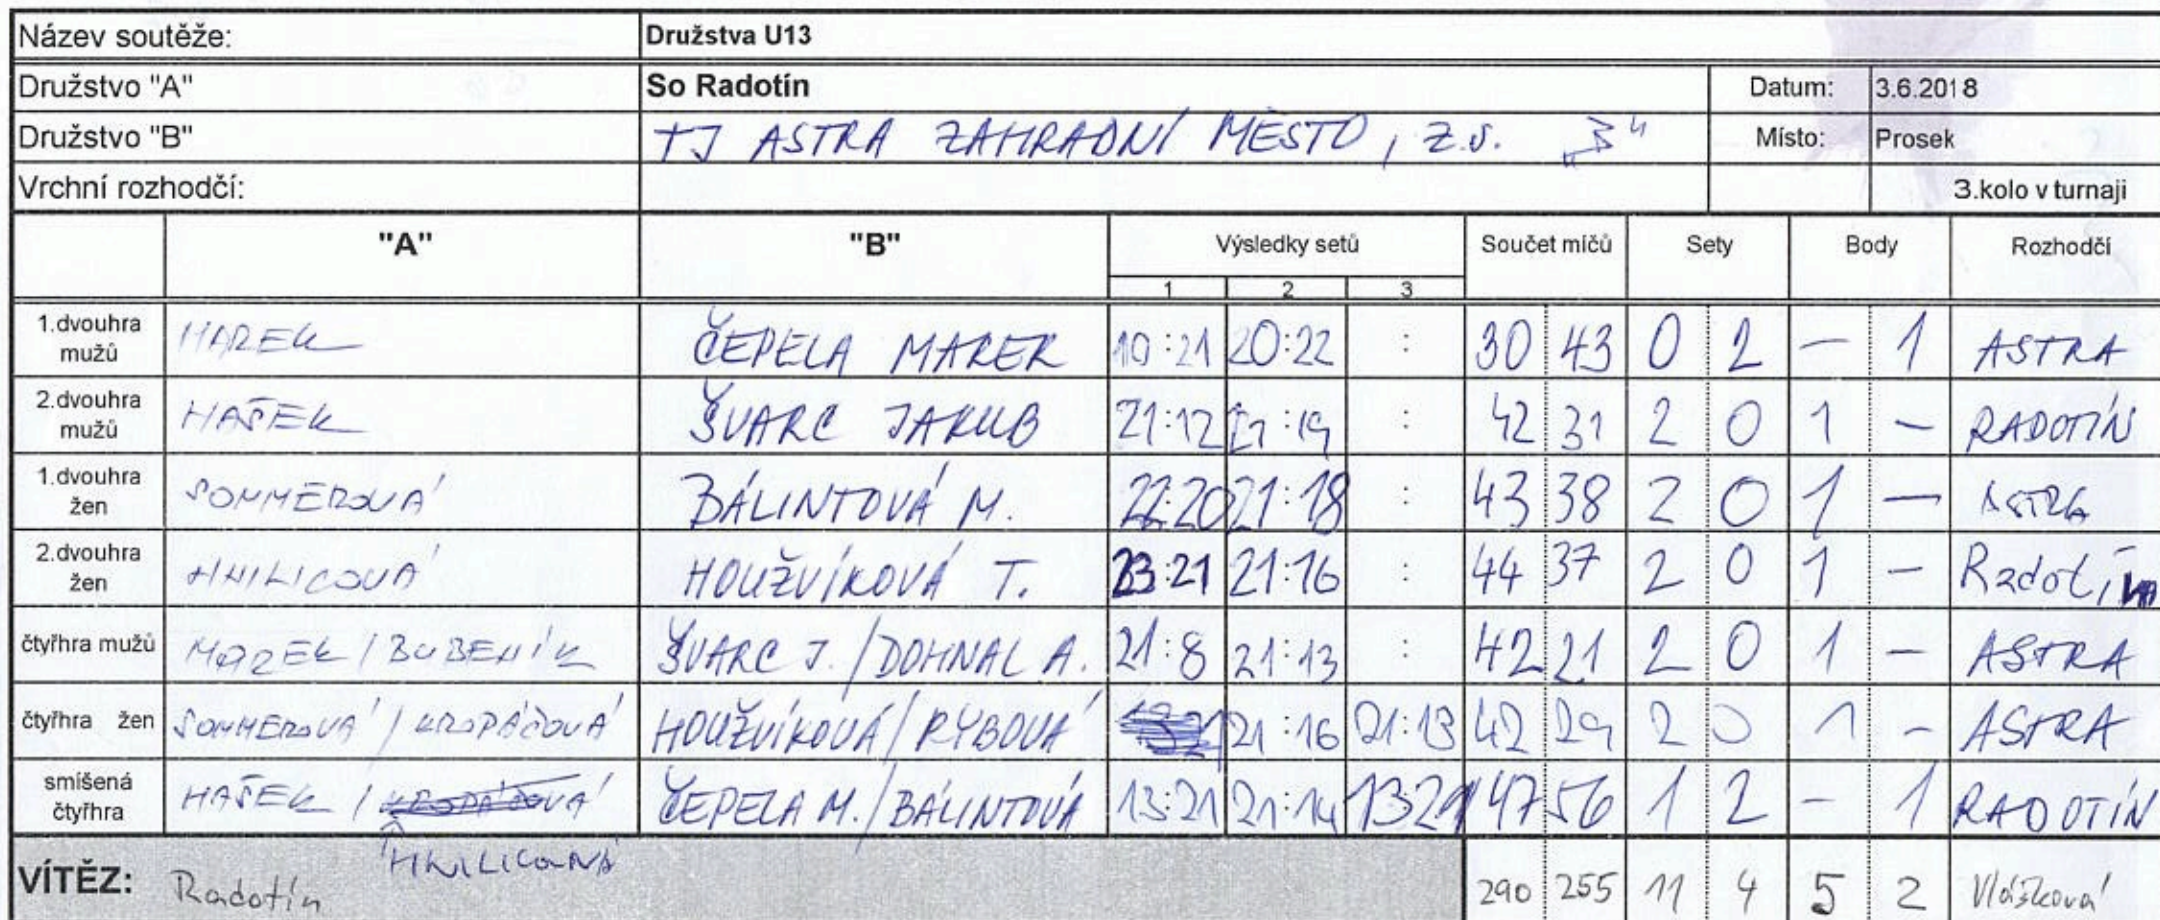 Název soutěže: Družstva U13
Družstvo "A" So Radotín Datum: 3.6.2018
Družstvo "B" TJ ASTRA ZAHRADNÍ MĚSTO, z.s. „B" Místo: Prosek
Vrchní rozhodčí: 3.kolo v turnaji
"A" "B" Výsledky setů Součet míčů Sety Body Rozhodčí
1 2 3
1.dvouhra mužů MAREK ČEPELA MAREK 10:21 20:22 : 30 43 0 2 – 1 ASTRA
2.dvouhra mužů HAŠEK ŠVARC JAKUB 21:12 21:19 : 42 31 2 0 1 – RADOTÍN
1.dvouhra žen SOMMEROVÁ BÁLINTOVÁ M. 22:20 21:18 : 43 38 2 0 1 – ASTRA
2.dvouhra žen HNILICOVÁ HOUŽVÍKOVÁ T. 23:21 21:16 : 44 37 2 0 1 – Radotín
čtyřhra mužů MAREK / BUBENÍK ŠVARC J. / DOHNAL A. 21:8 21:13 : 42 21 2 0 1 – ASTRA
čtyřhra žen SOMMEROVÁ / KROPÁČOVÁ HOUŽVÍKOVÁ / RYBOVÁ 21:16 21:13 42 29 2 0 1 – ASTRA
smíšená čtyřhra HAŠEK / KROPÁČOVÁ ČEPELA M. / BÁLINTOVÁ 13:21 21:14 13:21 47 56 1 2 – 1 RADOTÍN
HNILICOVÁ
VÍTĚZ: Radotín 290 255 11 4 5 2 Vlášková